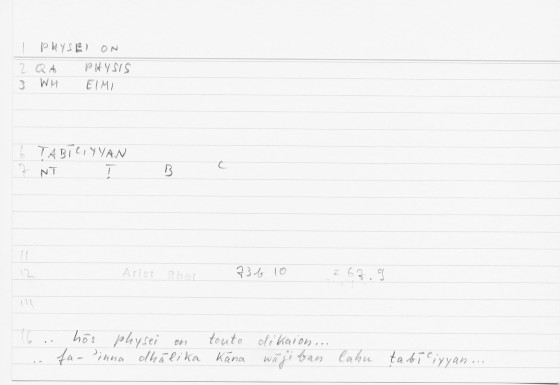 1 PHYSEI ON
2 QA PHYSIS
3 WH EIMI
6 ṬABĪʿIYYAN
7 NT Ṭ B ʿ
11
12 Arist Rhet 73b 10 = 67.9
16 .. hōs physei on touto dikaion...
.. fa-ʾinna dhālika kāna wājiban lahu ṭabīʿiyyan...